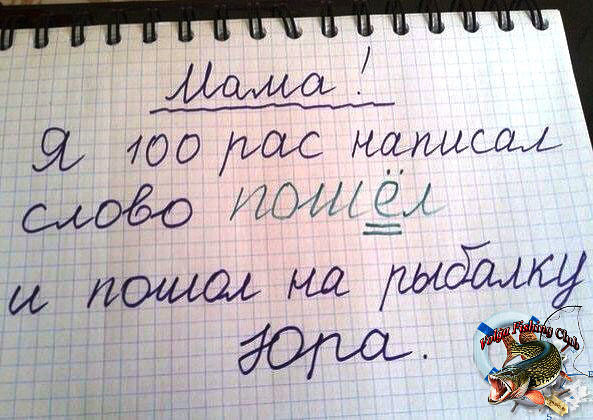 Мама!
Я 100 рас написал
слово пошёл
и пошол на рыбалку
Юра.
Volga Fishing Club